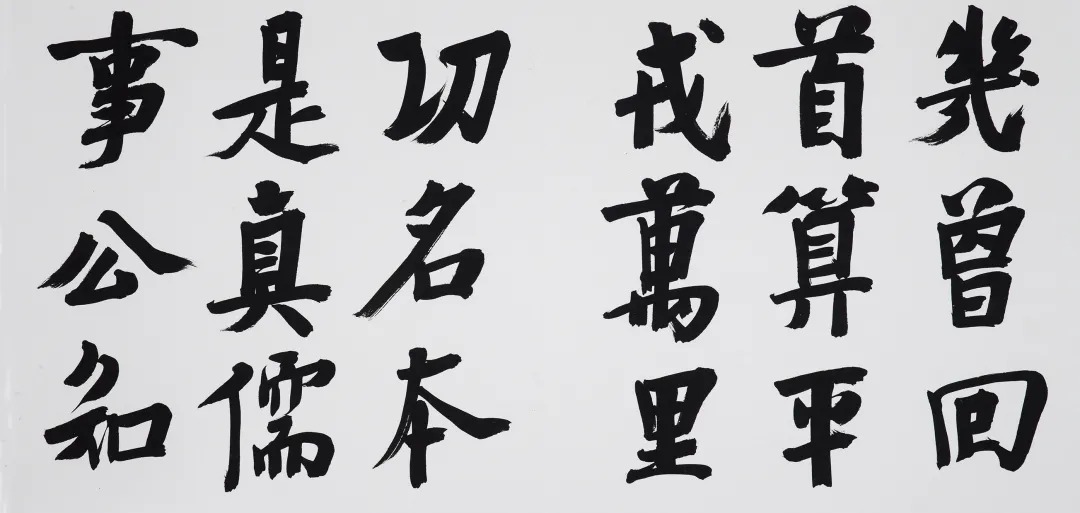 幾曾回
首算平
戎萬里
功名本
是真儒
事公知